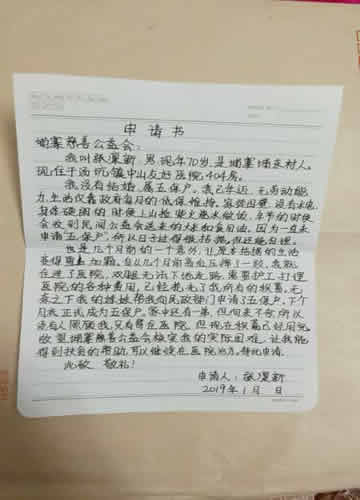 申请书
埔寨慈善公益会:
我叫张溪新 男,现年70岁,是埔寨埔东村人。
现住于汤坑镇中山友好医院404房。
我没有结婚,属五保户。我已年迈,无劳动能
力,生活仅靠政府每月的低保维持,家徒四壁,没有水电
身体硬困的时候上山捡柴火烧水做饭,年节的时候
会收到民间公益会送来的大米和食用油,因为一直未
申请五保户,所以日子过得很拮据,但还能自理。
但是几个月前的一个意外,让原本拮据的生活
变得雪上加霜。自从几个月前左右压摔了一跤,我就
住进了医院,双腿无法下地走路,需要护工打理
医院的各种费用,已经耗光了我所有的积蓄,无
奈之下我的妹妹帮我向民政部门申请了五保户,下个
月我正式成为五保户。家中还有一弟,但向来不和,所以
没有人照顾我,只有留在医院。但现在积蓄已经用完,
故望埔寨慈善公益会核实我的实际困难,让我能
得到社会的帮助,可以继续在医院治疗。特此申请。
此致 敬礼!
申请人:张溪新
2019年1月 日